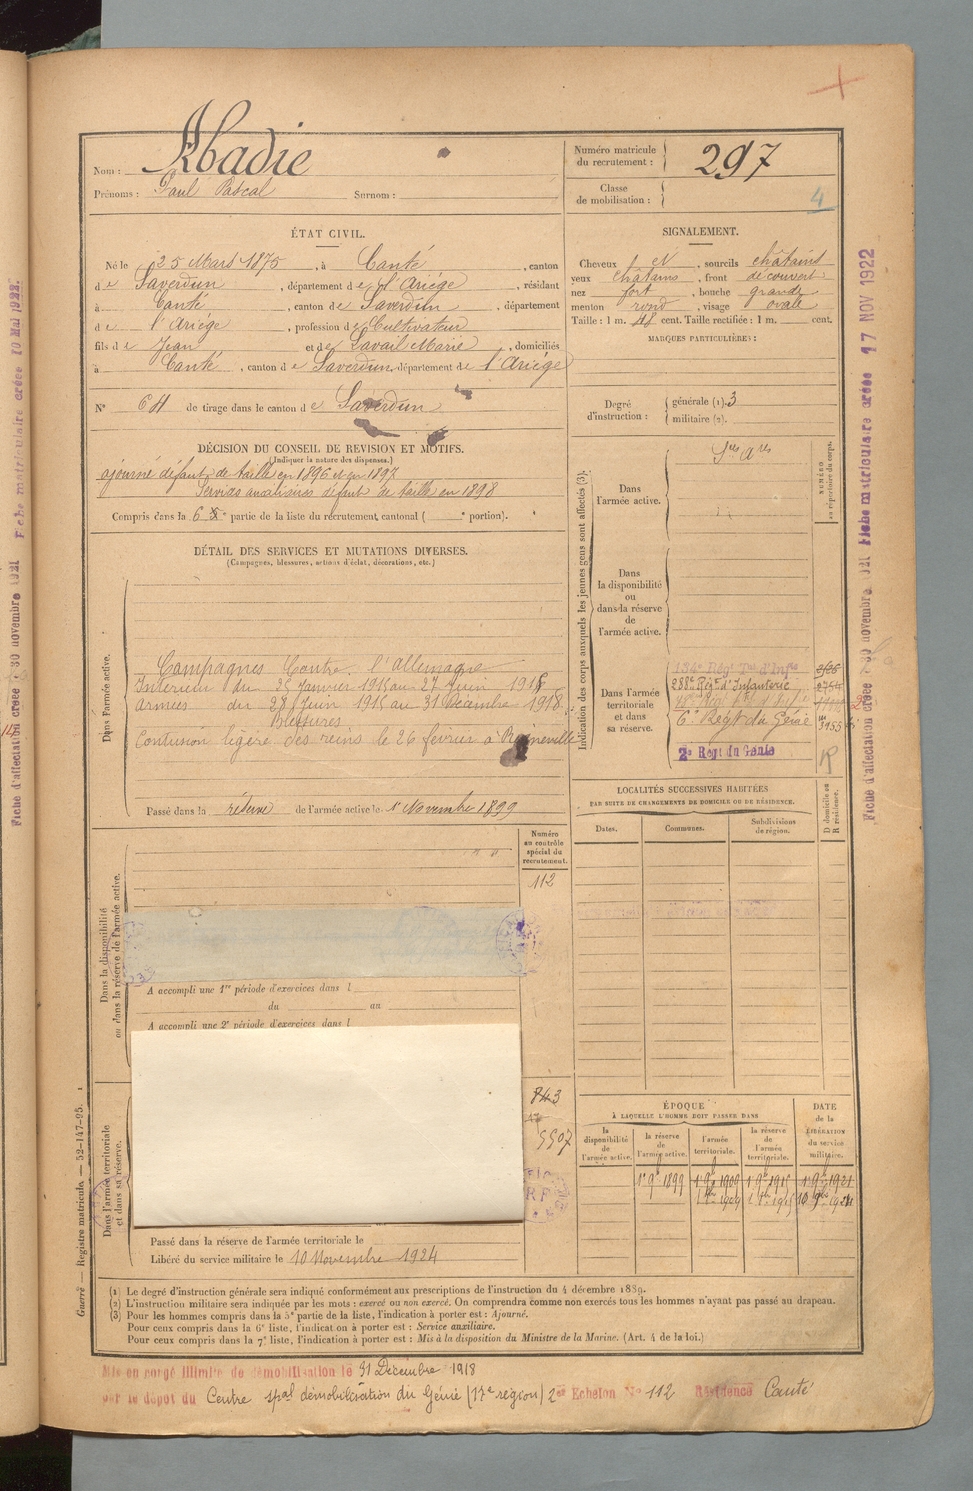 Nom : Abadie
Prénoms : Paul Pascal Surnom :
Numéro matricule du recrutement : 297
Classe de mobilisation :
4
ÉTAT CIVIL.
Né le 25 Mars 1875, à Canté, canton
de Saverdun, département de l'Ariége, résidant
à Canté, canton de Saverdun, département
de l'Ariége, profession de Cultivateur
fils de Jean et de Lavail Marie, domiciliés
à Canté, canton de Saverdun, département de l'Ariége
N° 64 de tirage dans le canton de Saverdun
DÉCISION DU CONSEIL DE REVISION ET MOTIFS.
(Indiquer la nature des dispenses.)
ajourné défaut de taille en 1896 et en 1897
Services auxiliaires défaut de taille en 1898
Compris dans la 6e partie de la liste du recrutement cantonal ( e portion).
SIGNALEMENT.
Cheveux et, sourcils châtains
yeux châtains, front découvert
nez fort, bouche grande
menton rond, visage ovale
Taille : 1 m. cent. Taille rectifiée : 1 m. cent.
MARQUES PARTICULIÈRES :
Degré d'instruction : générale (1). 3
militaire (2).
DÉTAIL DES SERVICES ET MUTATIONS DIVERSES.
(Campagnes, blessures, actions d'éclat, décorations, etc.)
Dans l'armée active.
Campagnes Contre l'Allemagne
Interieur du 25 Janvier 1915 au 27 Juin 1915
Armées du 28 Juin 1915 au 31 Décembre 1918.
Blessures
Contusion légère des reins le 26 fevrier à
Passé dans la réserve de l'armée active le 1er Novembre 1899
Indication des corps auxquels les jeunes gens sont affectés (3).
NUMÉRO au répertoire du corps.
Dans l'armée active.
Sces Ares
Dans la disponibilité ou dans la réserve de l'armée active.
Dans l'armée territoriale et dans sa réserve.
134e Régt Tal d'Infie
288e Régt d'Infanterie
6e Régt du Génie
2e Régt du Génie
R
LOCALITÉS SUCCESSIVES HABITÉES
PAR SUITE DE CHANGEMENTS DE DOMICILE OU DE RÉSIDENCE.
Dates. Communes. Subdivisions de région. D domicile ou R résidence.
Dans la disponibilité ou dans la réserve de l'armée active.
Numéro au contrôle spécial du recrutement.
112
A accompli une 1re période d'exercices dans l
du au
A accompli une 2e période d'exercices dans l
Dans l'armée territoriale et dans sa réserve.
843
5507
RF
Passé dans la réserve de l'armée territoriale le
Libéré du service militaire le 10 Novembre 1924
ÉPOQUE
À LAQUELLE L'HOMME DOIT PASSER DANS
DATE de la LIBÉRATION du service militaire.
la disponibilité de l'armée active. la réserve de l'armée active. l'armée territoriale. la réserve de l'armée territoriale.
1er 9bre 1899 1er 9bre 1909 1er 9bre 1915 1er 9bre 1921
(1) Le degré d'instruction générale sera indiqué conformément aux prescriptions de l'instruction du 4 décembre 1889.
(2) L'instruction militaire sera indiquée par les mots : exercé ou non exercé. On comprendra comme non exercés tous les hommes n'ayant pas passé au drapeau.
(3) Pour les hommes compris dans la 5e partie de la liste, l'indication à porter est : Ajourné.
Pour ceux compris dans la 6e liste, l'indication à porter est : Service auxiliaire.
Pour ceux compris dans la 7e liste, l'indication à porter est : Mis à la disposition du Ministre de la Marine. (Art. 4 de la loi.)
Mis en congé illimité de démobilisation le 31 Décembre 1918
par le dépôt du Centre spal démobilisation du Génie (17e région) 2e Echelon N° 112 Résidence Canté
Guerre — Registre matricule. — 52-147-95.
Fiche d'affectation créée 30 novembre 1921 Fiche matriculaire créée 10 Mai 1922.
Fiche d'affectation créée 30 novembre 1921 Fiche matriculaire créée 17 NOV 1922